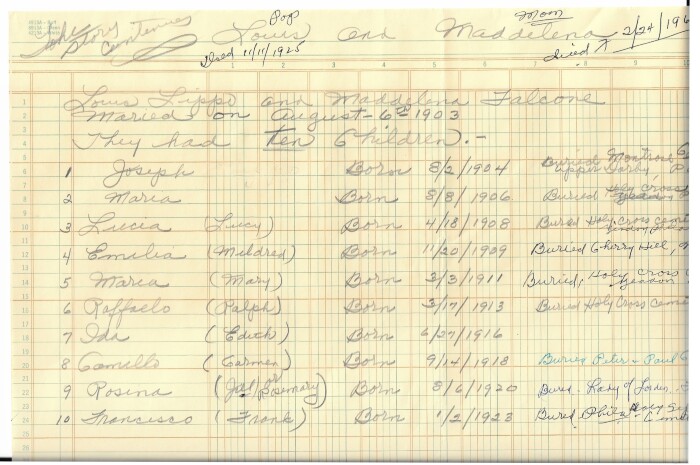 Pop Mom
John story continues Louis and Maddelena 2/24/196
died 11/11/1925 died
Louis Lippo and Maddelena Falcone
Maried on August - 6th 1903
They had Ten Children. -
1 Joseph Born 8/2/1904 Buried Montrose Upper Darby, P
2 Maria Born 8/8/1906 Buried Holy Cross Yeadon
3 Lucia (Lucy) Born 4/18/1908 Buried Holy Cross Yeadon
4 Emilia (Mildred) Born 11/20/1909 Buried Cherry Hill,
5 Maria (Mary) Born 3/3/1911 Buried, Holy Cross Yeadon
6 Raffaelo (Ralph) Born 3/17/1913 Buried Holy Cross Ceme
7 Ida (Edith) Born 6/27/1916
8 Camillo (Carmen) Born 9/14/1918 Buried Peter + Paul
9 Rosina (Jill or Rosemary) Born 8/6/1920 Bured - Lady of
10 Francisco (Frank) Born 1/2/1923 Bured Phila